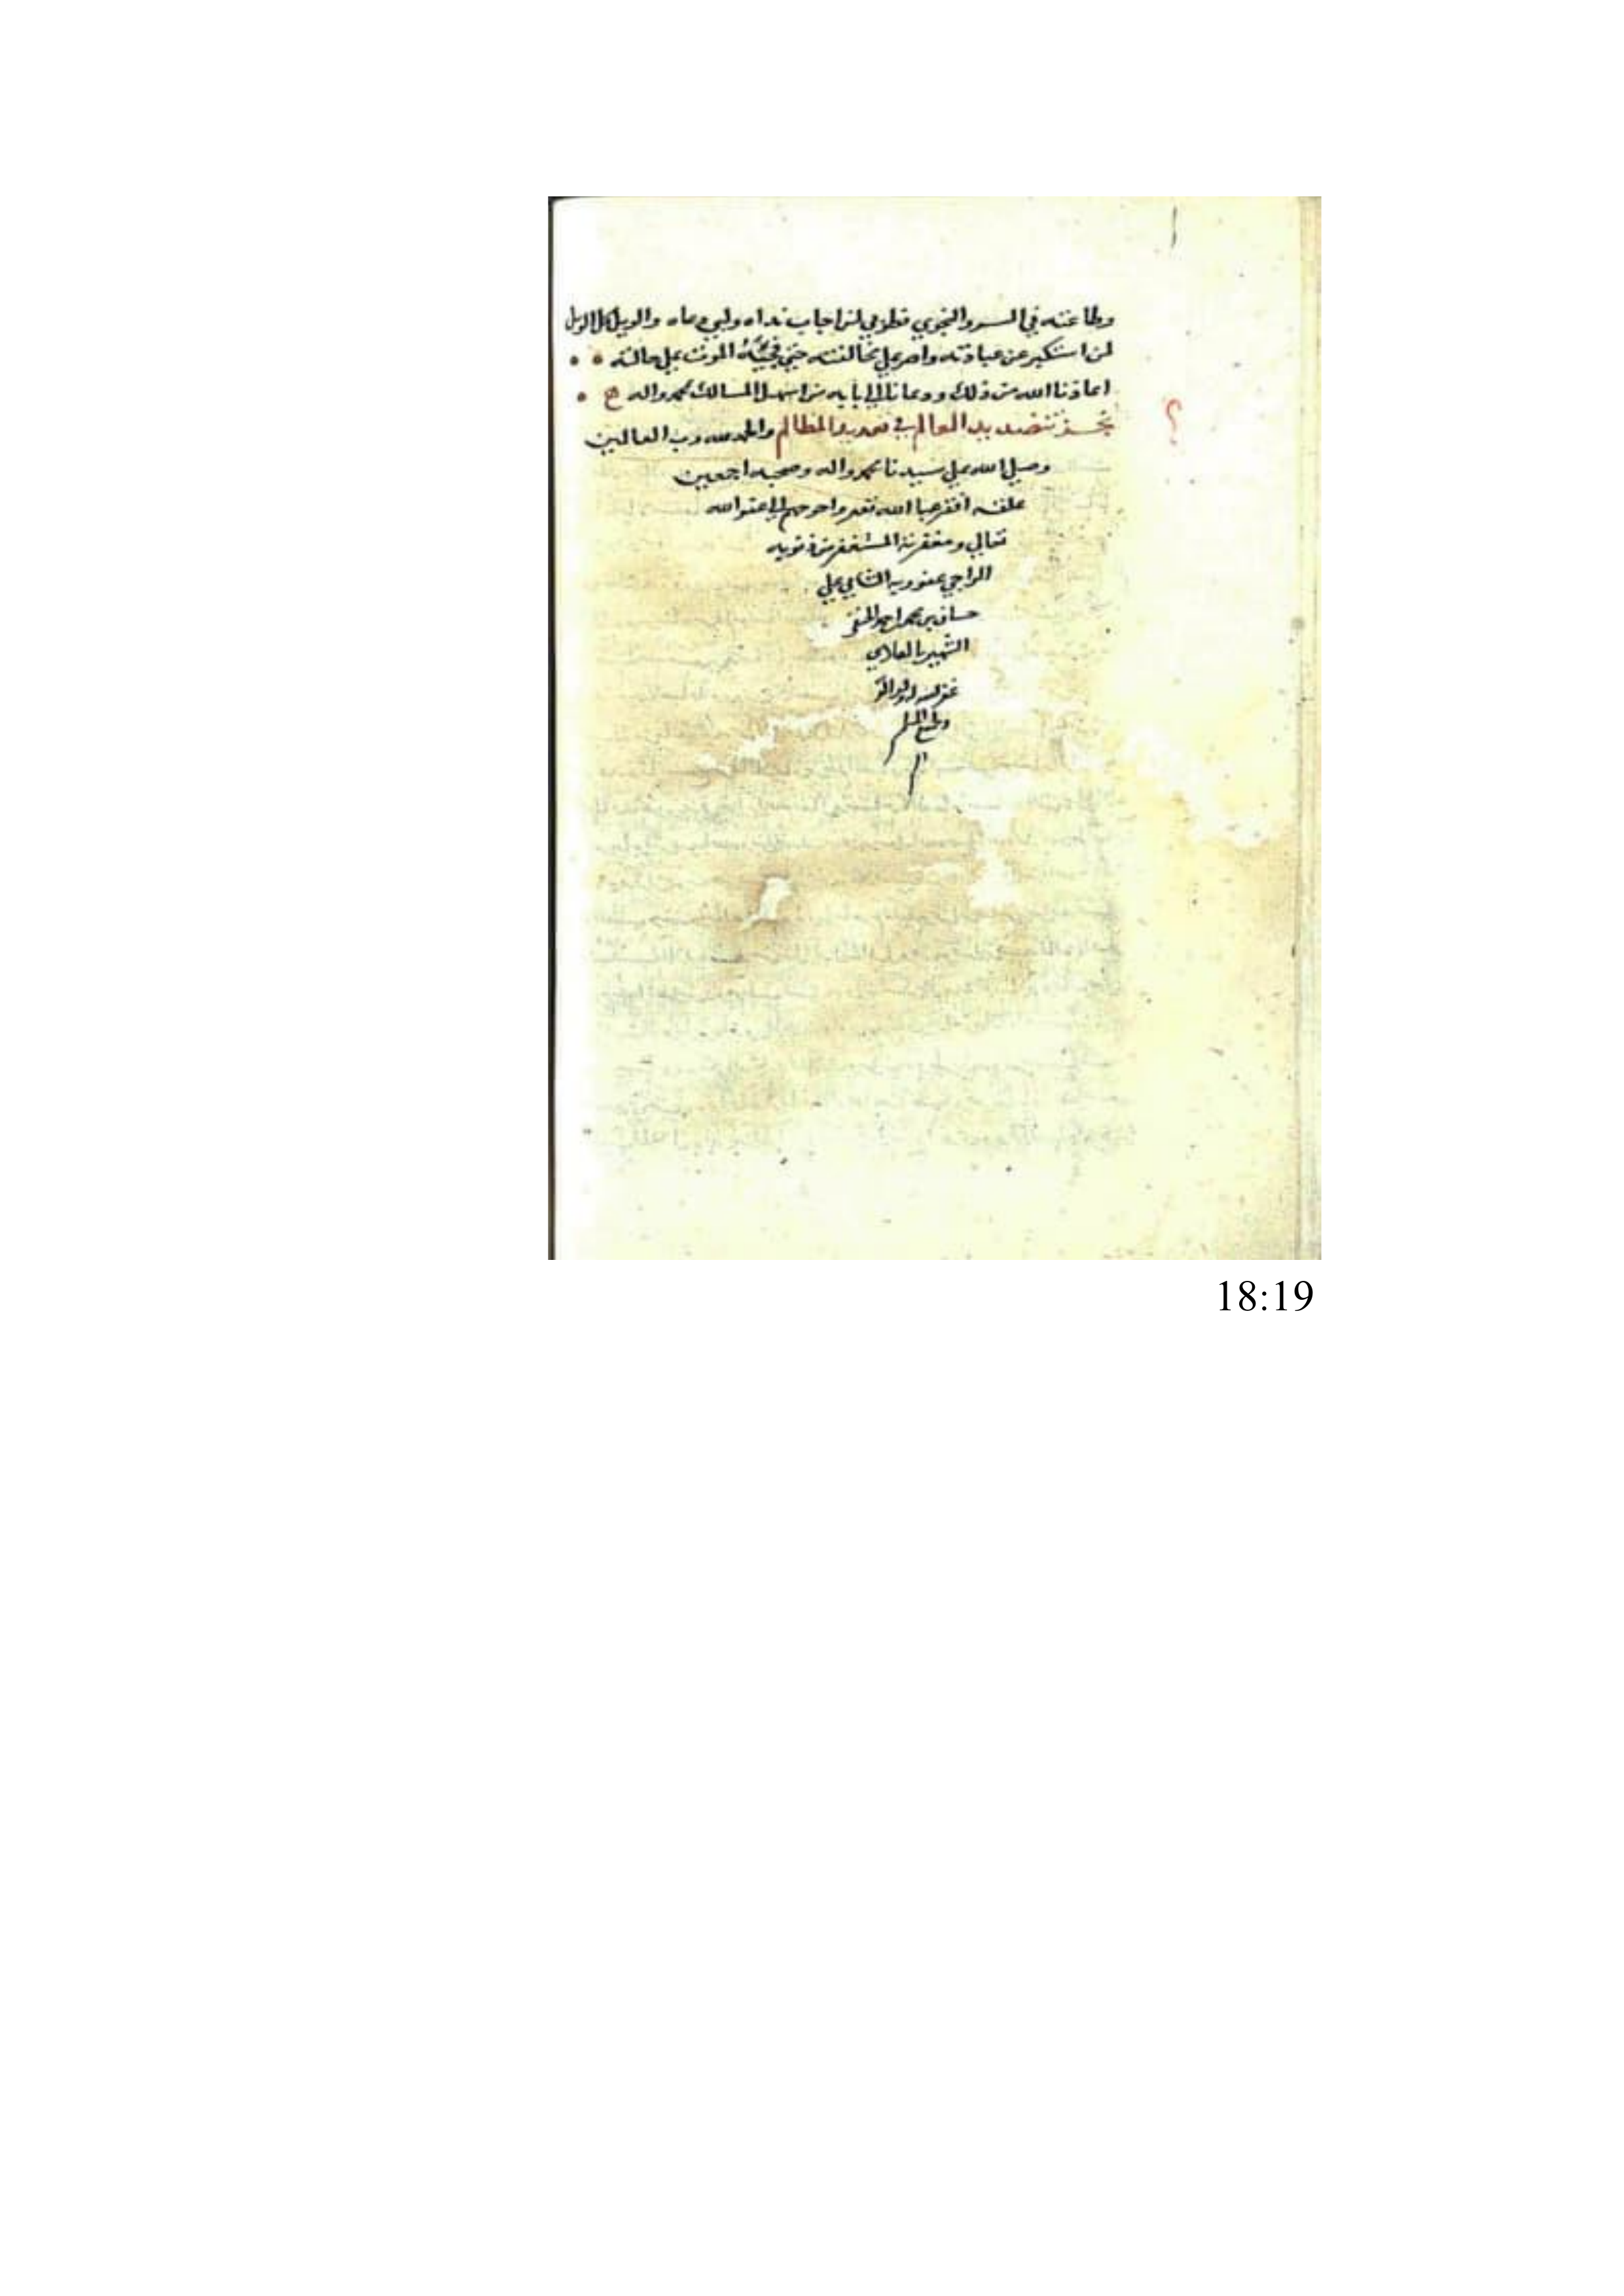 وطاعته في السر والنجوي فطوبي لمن اجاب نداه ولبي دعاه والويل كل الويل
لمن استكبر عن عبادته واصر علي مخالفته حتي فجئه الموت علي حالته
اعاذنا الله من ذلك ودعانا الي بابه من اسهل المسالك بمحمد واله
العالم في المظالم والحمد لله رب العالمين
وصلي الله علي سيدنا محمد واله وصحبه اجمعين
علقه افقر عباد الله تعه واحوجهم الي عفو الله
تعالي ومغفرته المستغفر من ذنوبه
الراجي عفو ربه علي
حسان بن محمد احمد الحنفي
الشهير بالعلاي
غفر له ولوالديه
18:19